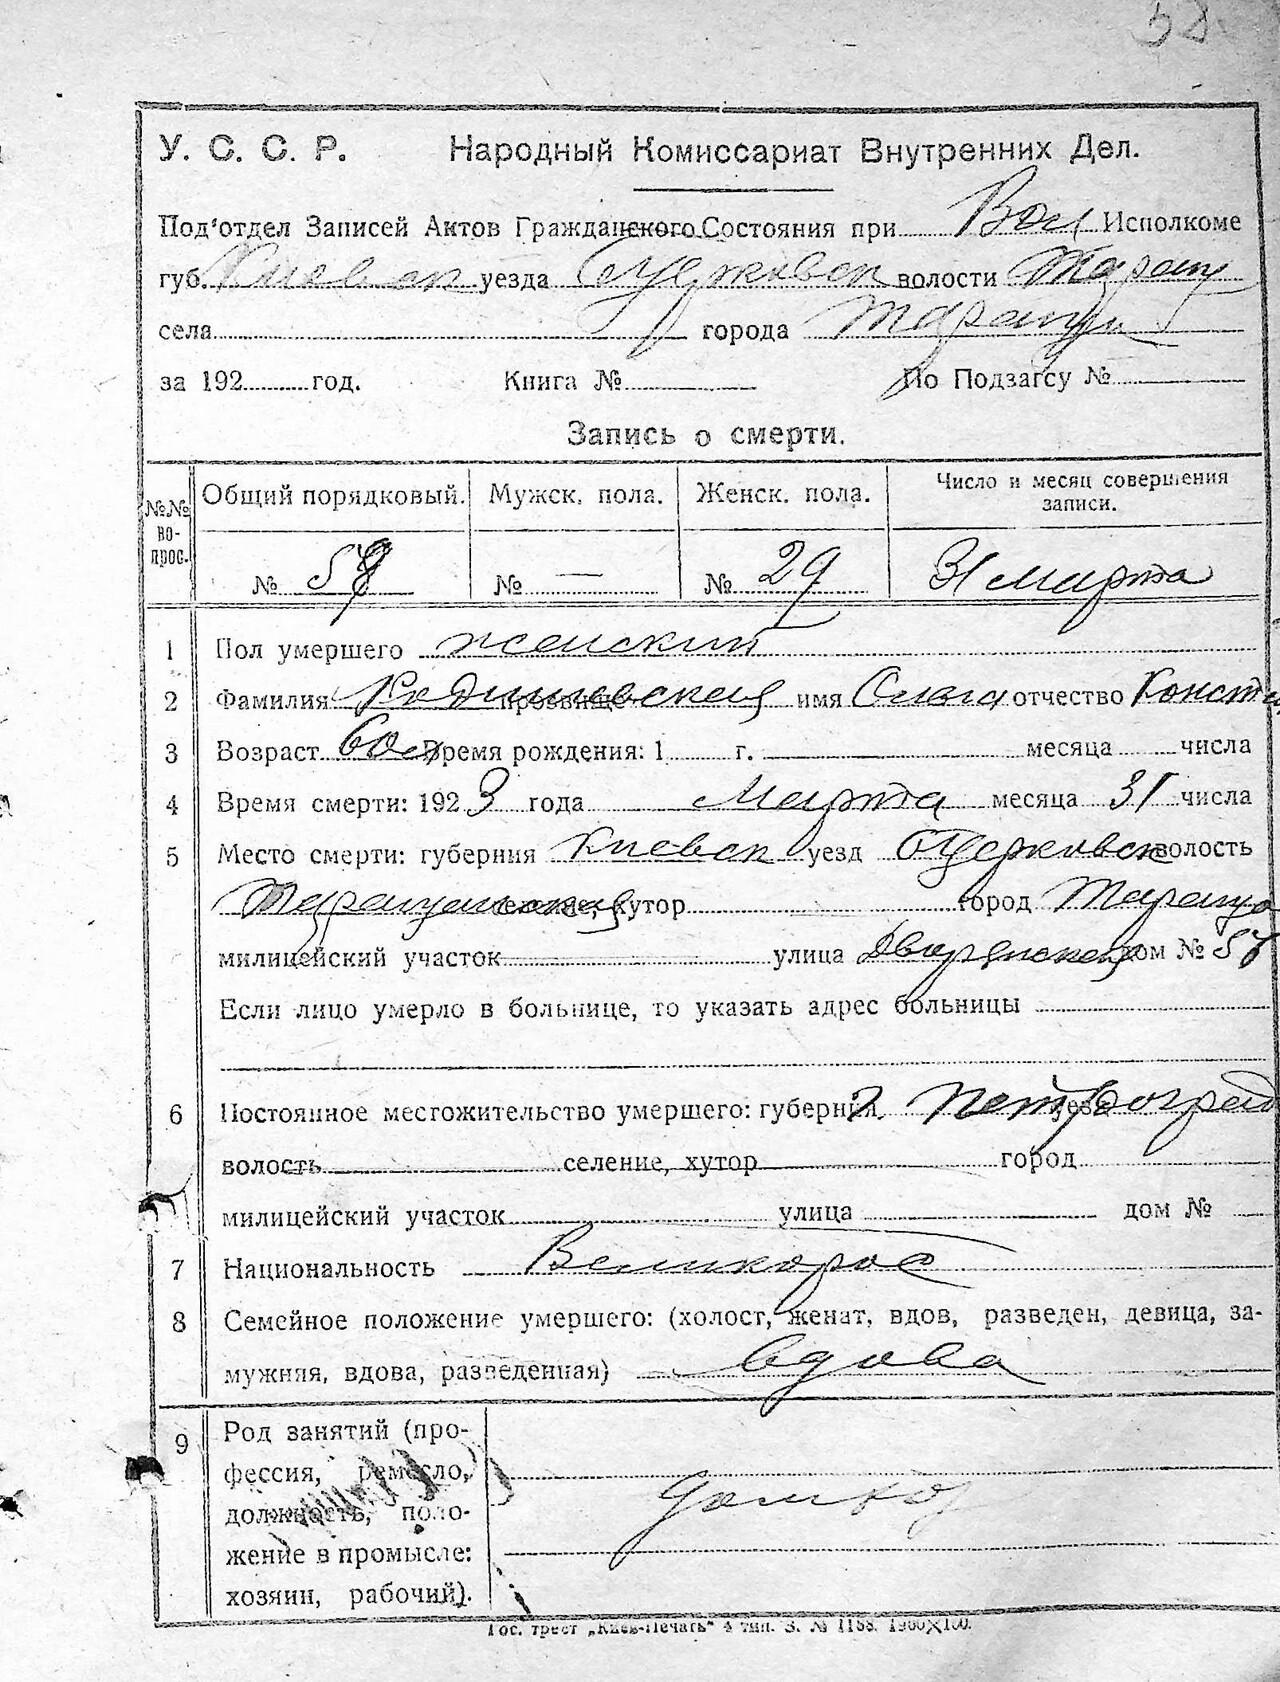 58
У. С. С. Р. Народный Комиссариат Внутренних Дел.
Под'отдел Записей Актов Гражданского Состояния при Вол Исполкоме
губ. Киевск уезда БЦерковск волости Таращ
села города Таращи
за 192 год. Книга № По Подзагсу №
Запись о смерти.
№№ во- прос. Общий порядковый. Мужск. пола. Женск. пола. Число и месяц совершения записи.
№ № — № 29 31 марта
1 Пол умершего женский
2 Фамилия прозвище имя Ольга отчество Конст
3 Возраст 60 л Время рождения: 1 г. месяца числа
4 Время смерти: 1923 года Марта месяца 31 числа
5 Место смерти: губерния Киевск уезд БЦерковск волость
Таращанская село, хутор город Тараща
милицейский участок улица Дворянская дом № 57
Если лицо умерло в больнице, то указать адрес больницы
6 Постоянное местожительство умершего: губерния г. Петроград уезд
волость селение, хутор город
милицейский участок улица дом №
7 Национальность Великорос
8 Семейное положение умершего: (холост, женат, вдов, разведен, девица, за-
мужняя, вдова, разведенная) вдова
9 Род занятий (про-
фессия, ремесло,
должность, поло- домхоз
жение в промысле:
хозяин, рабочий).
Гос. трест „Киев-Печать" 4 тип. З. № 1188. 1900×100.